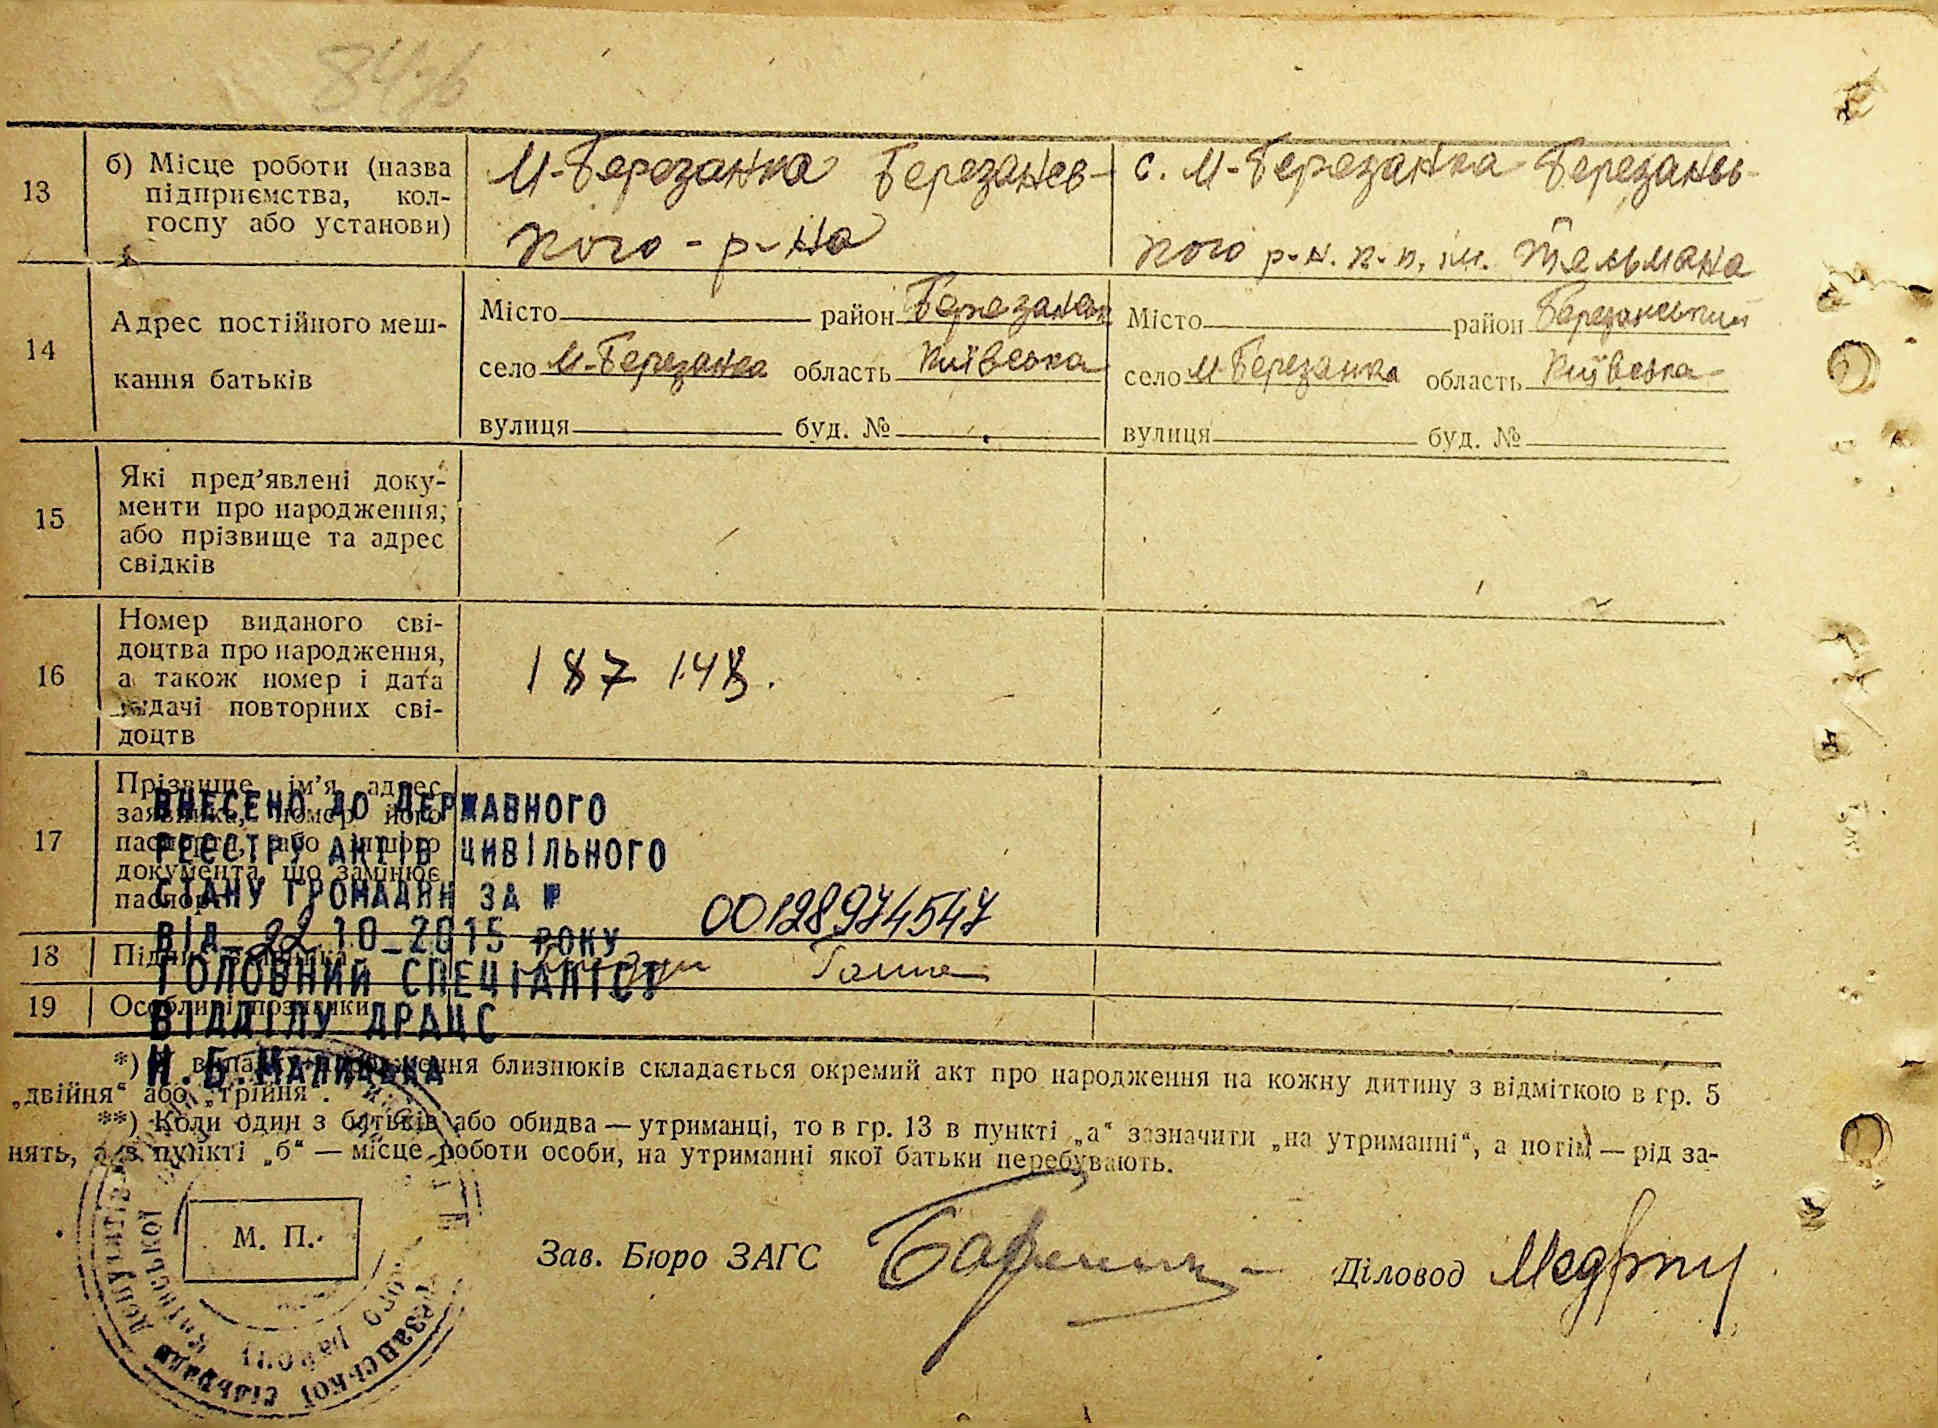 13
б) Місце роботи (назва
підприємства, кол-
госпу або установи)
М-Березанка Березансь-
кого - р-на
с. М-Березанка Березансь-
кого р-н. к-п. ім. Тельмана
14
Адрес постійного меш-
кання батьків
Місто район Березанськ
село М-Березанка область Київська
вулиця буд. №
Місто район Березанський
село М-Березанка область Київська
вулиця буд. №
15
Які пред’явлені доку-
менти про народження,
або прізвище та адрес
свідків
16
Номер виданого сві-
доцтва про народження,
а також номер і дата
видачі повторних сві-
доцтв
187 148.
17
Прізвище, ім’я, адрес
заявника, номер його
паспорта, або іншого
документа, що замінює
паспорт
ВНЕСЕНО ДО ДЕРЖАВНОГО
РЕЄСТРУ АКТІВ ЦИВІЛЬНОГО
СТАНУ ГРОМАДЯН ЗА №
00128974547
ВІД 22 10 2015 РОКУ
ГОЛОВНИЙ СПЕЦІАЛІСТ
ВІДДІЛУ ДРАЦС
18
Підпис заявника
Ганна
19
Особливі позначки
*) У випадку народження близнюків складається окремий акт про народження на кожну дитину з відміткою в гр. 5
„двійня“ або „трійня“.
**) Коли один з батьків або обидва — утриманці, то в гр. 13 в пункті „а“ зазначити „на утриманні“, а потім — рід за-
нять, а в пункті „б“ — місце роботи особи, на утриманні якої батьки перебувають.
М. П.
Зав. Бюро ЗАГС
Діловод